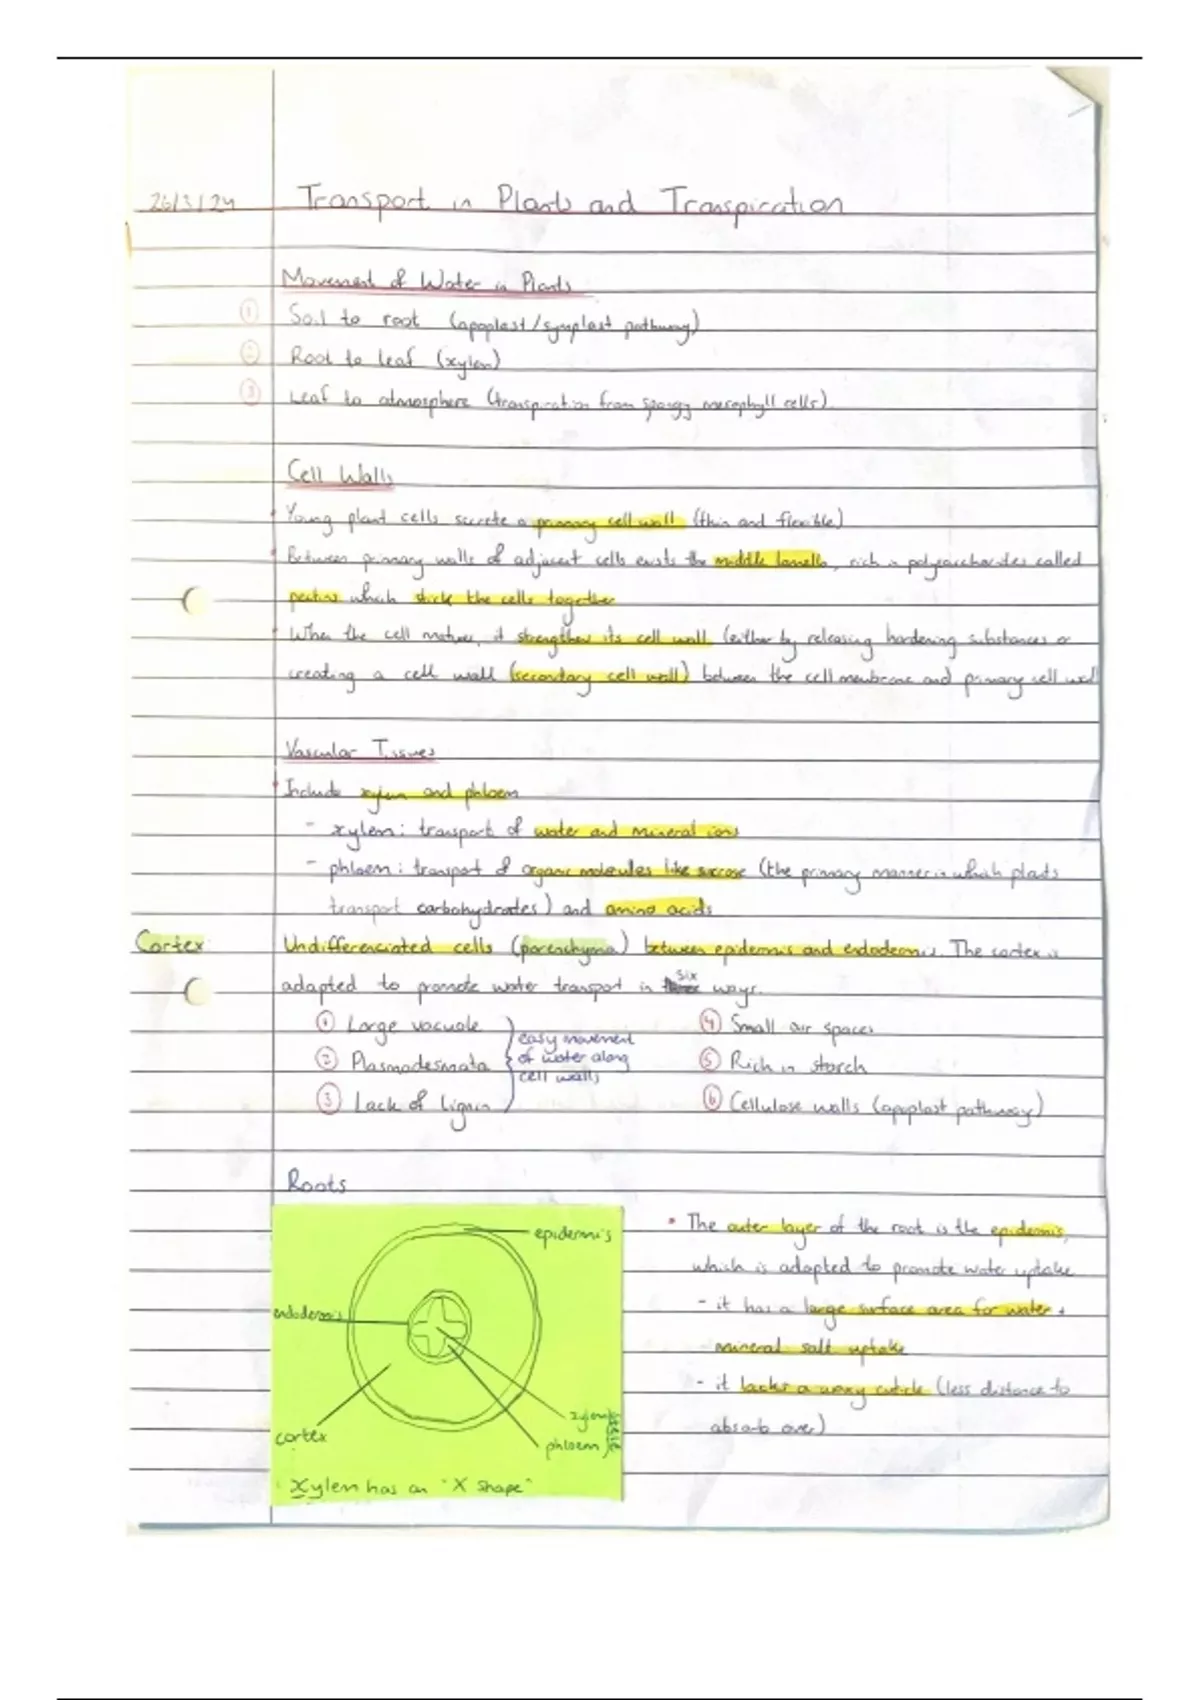 26/3/24 Transport in Plants and Transpiration
Movement of Water in Plants
① Soil to root (apoplast/symplast pathway)
② Root to leaf (xylem)
③ Leaf to atmosphere (transpiration from spongy mesophyll cells)
Cell Walls
• Young plant cells secrete a primary cell wall (thin and flexible)
• Between primary walls of adjacent cells exists the middle lamella, rich in polysaccharides called
pectins which stick the cells together
• When the cell matures, it strengthens its cell wall (either by releasing hardening substances or
creating a cell wall (secondary cell wall) between the cell membrane and primary cell wall
Vascular Tissues
• Include xylem and phloem
- xylem: transport of water and mineral ions
- phloem: transport of organic molecules like sucrose (the primary manner in which plants
transport carbohydrates) and amino acids
Cortex Undifferenciated cells (parenchyma) between epidermis and endodermis. The cortex is
adapted to promote water transport in six ways.
① Large vacuole
② Plasmodesmata
③ Lack of lignin
easy movement
of water along
cell walls
④ Small air spaces
⑤ Rich in starch
⑥ Cellulose walls (apoplast pathway)
Roots
epidermis
endodermis
cortex
xylem
phloem
Xylem has an "X shape"
• The outer layer of the root is the epidermis,
which is adapted to promote water uptake
- it has a large surface area for water +
mineral salt uptake
- it lacks a waxy cuticle (less distance to
absorb over)